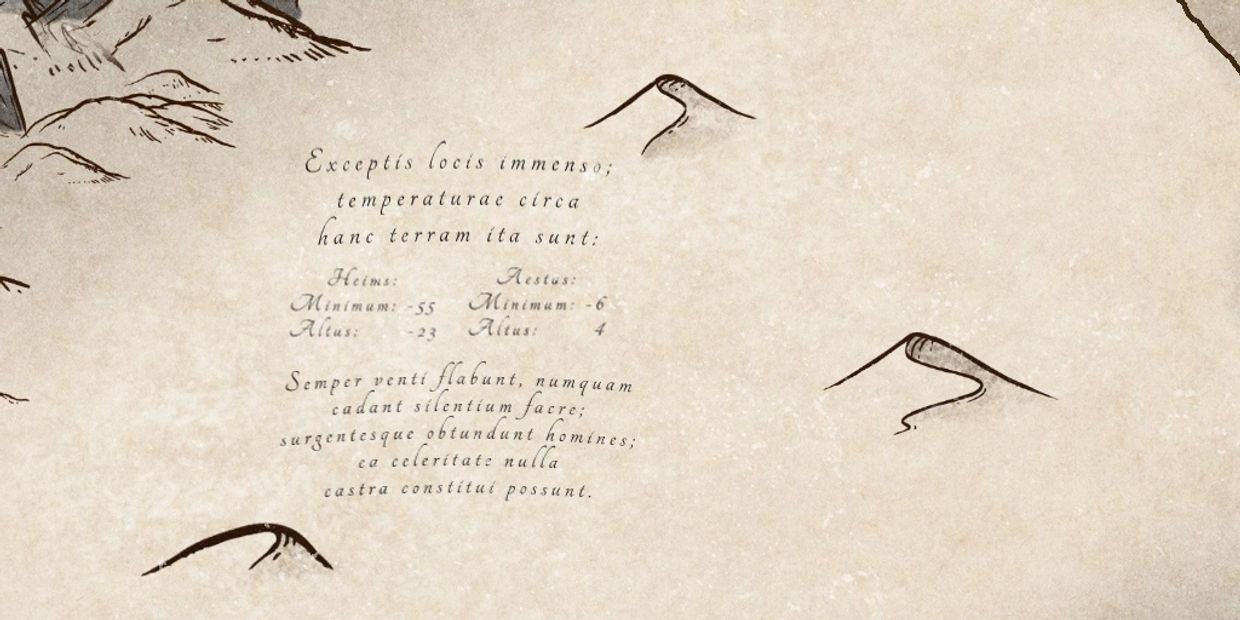 Exceptis locis immenso;
temperaturae circa
hanc terram ita sunt:
Heims: Aestas:
Minimum: -55 Minimum: -6
Altus: -23 Altus: 4
Semper venti flabunt, numquam
cadant silentium facre;
surgentesque obtundunt homines;
ea celeritate nulla
castra constitui possunt.